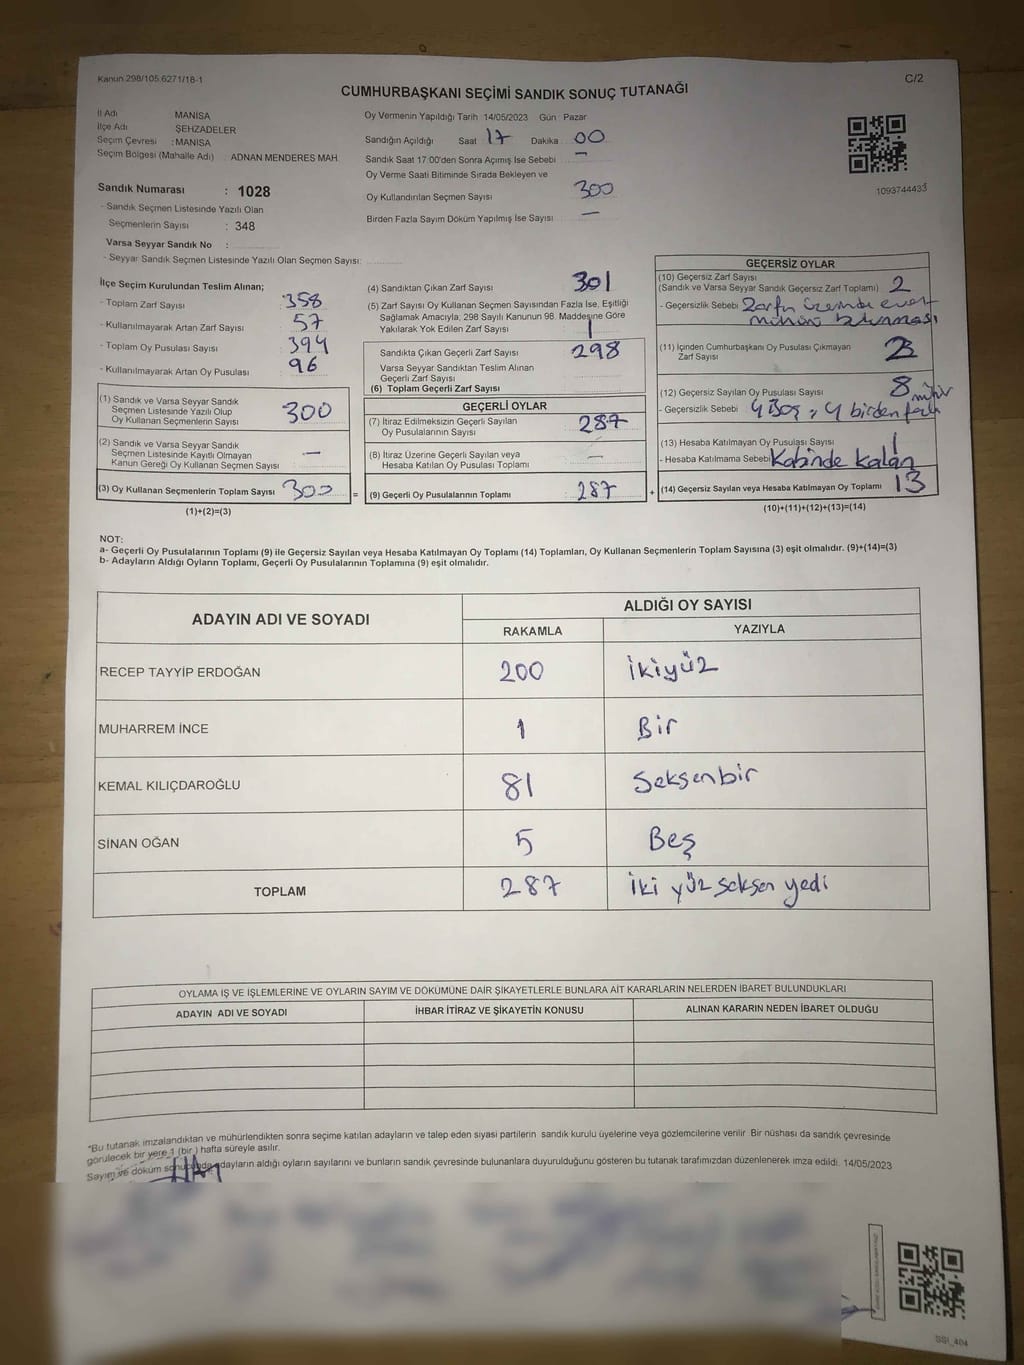 Kanun 298/105.6271/18-1
C/2
CUMHURBAŞKANI SEÇİMİ SANDIK SONUÇ TUTANAĞI
İl Adı MANİSA
İlçe Adı ŞEHZADELER
Seçim Çevresi : MANİSA
Seçim Bölgesi (Mahalle Adı) ADNAN MENDERES MAH.
Sandık Numarası : 1028
- Sandık Seçmen Listesinde Yazılı Olan
Seçmenlerin Sayısı : 348
Varsa Seyyar Sandık No :
- Seyyar Sandık Seçmen Listesinde Yazılı Olan Seçmen Sayısı:
Oy Vermenin Yapıldığı Tarih 14/05/2023 Gün Pazar
Sandığın Açıldığı Saat 17 Dakika 00
Sandık Saat 17:00'den Sonra Açımış İse Sebebi —
Oy Verme Saati Bitiminde Sırada Bekleyen ve
Oy Kullandırılan Seçmen Sayısı 300
Birden Fazla Sayım Döküm Yapılmış İse Sayısı —
1093744433
İlçe Seçim Kurulundan Teslim Alınan;
- Toplam Zarf Sayısı 358
- Kullanılmayarak Artan Zarf Sayısı 57
- Toplam Oy Pusulası Sayısı 394
- Kullanılmayarak Artan Oy Pusulası 96
(1) Sandık ve Varsa Seyyar Sandık
Seçmen Listesinde Yazılı Olup
Oy Kullanan Seçmenlerin Sayısı 300
(2) Sandık ve Varsa Seyyar Sandık
Seçmen Listesinde Kayıtlı Olmayan
Kanun Gereği Oy Kullanan Seçmen Sayısı —
(3) Oy Kullanan Seçmenlerin Toplam Sayısı 300
(1)+(2)=(3)
(4) Sandıktan Çıkan Zarf Sayısı 301
(5) Zarf Sayısı Oy Kullanan Seçmen Sayısından Fazla İse, Eşitliği
Sağlamak Amacıyla, 298 Sayılı Kanunun 98. Maddesine Göre
Yakılarak Yok Edilen Zarf Sayısı 1
Sandıkta Çıkan Geçerli Zarf Sayısı 298
Varsa Seyyar Sandıktan Teslim Alınan
Geçerli Zarf Sayısı
(6) Toplam Geçerli Zarf Sayısı
GEÇERLİ OYLAR
(7) İtiraz Edilmeksizin Geçerli Sayılan
Oy Pusulalarının Sayısı 287
(8) İtiraz Üzerine Geçerli Sayılan veya
Hesaba Katılan Oy Pusulası Toplamı —
= (9) Geçerli Oy Pusulalarının Toplamı : 287 +
GEÇERSİZ OYLAR
(10) Geçersiz Zarf Sayısı
(Sandık ve Varsa Seyyar Sandık Geçersiz Zarf Toplamı) 2
- Geçersizlik Sebebi Zarfın üzerinde evet
mühürü bulunması
(11) İçinden Cumhurbaşkanı Oy Pusulası Çıkmayan
Zarf Sayısı 2
(12) Geçersiz Sayılan Oy Pusulası Sayısı 8
- Geçersizlik Sebebi 4 Boş, 4 birden fazla mühür
(13) Hesaba Katılmayan Oy Pusulası Sayısı 1
- Hesaba Katılmama Sebebi Kabinde kalan
(14) Geçersiz Sayılan veya Hesaba Katılmayan Oy Toplamı 13
(10)+(11)+(12)+(13)=(14)
NOT:
a- Geçerli Oy Pusulalarının Toplamı (9) ile Geçersiz Sayılan veya Hesaba Katılmayan Oy Toplamı (14) Toplamları, Oy Kullanan Seçmenlerin Toplam Sayısına (3) eşit olmalıdır. (9)+(14)=(3)
b- Adayların Aldığı Oyların Toplamı, Geçerli Oy Pusulalarının Toplamına (9) eşit olmalıdır.
ADAYIN ADI VE SOYADI ALDIĞI OY SAYISI
RAKAMLA YAZIYLA
RECEP TAYYİP ERDOĞAN 200 İkiyüz
MUHARREM İNCE 1 Bir
KEMAL KILIÇDAROĞLU 81 Seksenbir
SİNAN OĞAN 5 Beş
TOPLAM 287 İki yüz seksen yedi
OYLAMA İŞ VE İŞLEMLERİNE VE OYLARIN SAYIM VE DÖKÜMÜNE DAİR ŞİKAYETLERLE BUNLARA AİT KARARLARIN NELERDEN İBARET BULUNDUKLARI
ADAYIN ADI VE SOYADI İHBAR İTİRAZ VE ŞİKAYETİN KONUSU ALINAN KARARIN NEDEN İBARET OLDUĞU
*Bu tutanak imzalandıktan ve mühürlendikten sonra seçime katılan adayların ve talep eden siyasi partilerin sandık kurulu üyelerine veya gözlemcilerine verilir. Bir nüshası da sandık çevresinde
görülecek bir yere 1 (bir) hafta süreyle asılır.
Sayım ve döküm sonucunda adayların aldığı oyların sayılarını ve bunların sandık çevresinde bulunanlara duyurulduğunu gösteren bu tutanak tarafımızdan düzenlenerek imza edildi. 14/05/2023
SSI_404